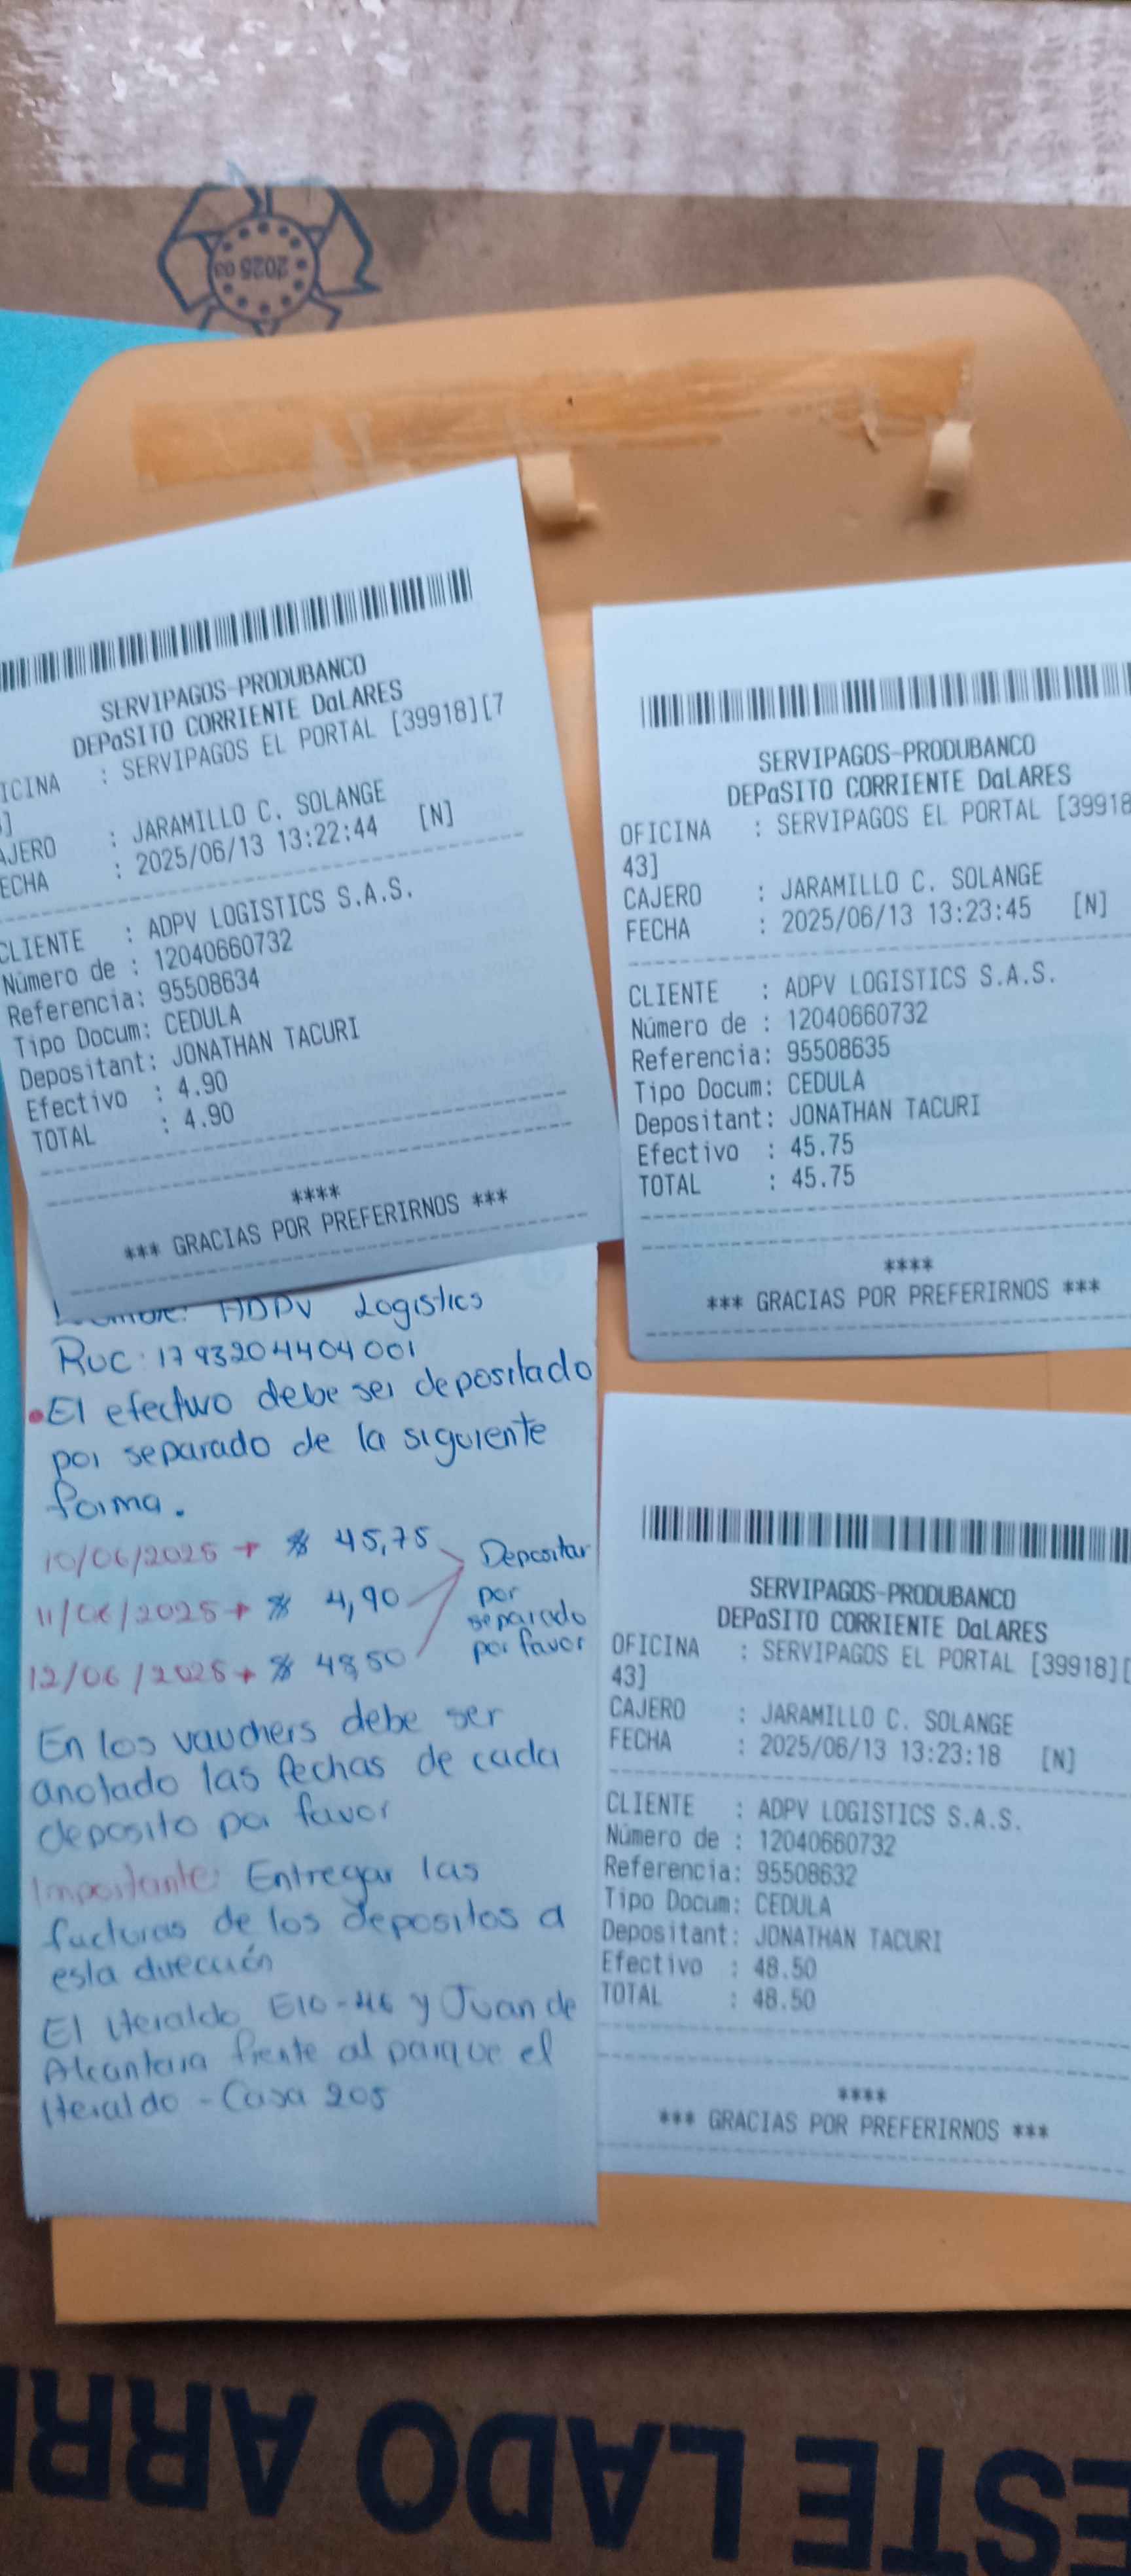 2025 03
SERVIPAGOS-PRODUBANCO
DEPaSITO CORRIENTE DaLARES
ICINA : SERVIPAGOS EL PORTAL [39918][7
]
AJERO : JARAMILLO C. SOLANGE
ECHA : 2025/06/13 13:22:44 [N]
CLIENTE : ADPV LOGISTICS S.A.S.
Número de : 12040660732
Referencia: 95508634
Tipo Docum: CEDULA
Depositant: JONATHAN TACURI
Efectivo : 4.90
TOTAL : 4.90
****
*** GRACIAS POR PREFERIRNOS ***
SERVIPAGOS-PRODUBANCO
DEPaSITO CORRIENTE DaLARES
OFICINA : SERVIPAGOS EL PORTAL [39918
43]
CAJERO : JARAMILLO C. SOLANGE
FECHA : 2025/06/13 13:23:45 [N]
CLIENTE : ADPV LOGISTICS S.A.S.
Número de : 12040660732
Referencia: 95508635
Tipo Docum: CEDULA
Depositant: JONATHAN TACURI
Efectivo : 45.75
TOTAL : 45.75
****
*** GRACIAS POR PREFERIRNOS ***
ADPV Logistics
Ruc: 1793204404001
• El efectivo debe ser depositado
por separado de la siguiente
forma.
10/06/2025 → $ 45,75
11/06/2025 → $ 4,90
12/06/2025 → $ 48,50
Depositar
por
separado
por favor
En los vauchers debe ser
anotado las fechas de cada
deposito por favor
Importante: Entregar las
facturas de los depositos a
esta dirección
El Heraldo E10-46 y Juan de
Alcantara frente al parque el
Heraldo - Casa 205
SERVIPAGOS-PRODUBANCO
DEPaSITO CORRIENTE DaLARES
OFICINA : SERVIPAGOS EL PORTAL [39918][
43]
CAJERO : JARAMILLO C. SOLANGE
FECHA : 2025/06/13 13:23:18 [N]
CLIENTE : ADPV LOGISTICS S.A.S.
Número de : 12040660732
Referencia: 95508632
Tipo Docum: CEDULA
Depositant: JONATHAN TACURI
Efectivo : 48.50
TOTAL : 48.50
****
*** GRACIAS POR PREFERIRNOS ***
ESTE LADO ARR